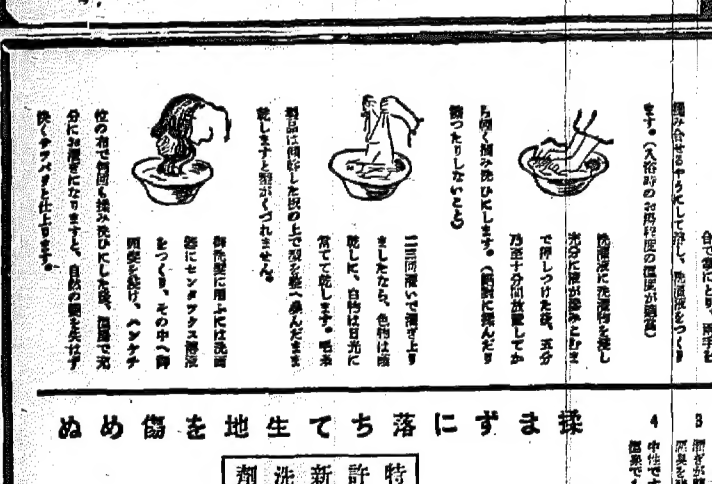 合で掌にとり、両手を
揉み合せるやうにして溶し、洗濯液をつくり
ます。(入浴時のお湯程度の温度が適当)
洗濯液に洗濯物を浸し
充分に液が滲みこむま
で押しつけた後、五分
乃至十分間放置してか
ら軽く掴み洗ひにします。(絶対に揉んだり
擦つたりしないこと)
二三回濯いで濯ぎ上り
ましたなら、色物は陰
乾しに、白物は日光に
当てて乾します。毛糸
製品は、した板の上で型を整へ畳んだまま
乾しますと型がくづれません。
御洗髪に用ふには洗面
器にセンタックス溶液
をつくり、その中へ御
頭髪を浸け、ハンケチ
位の布で何回も揉み洗ひにした後、温湯で充
分にお濯ぎになりますと、自然の艶を失はず
快くサラバサと仕上ります。
揉まずに落ちて生地を傷めぬ
特許新洗剤
3
濯ぎが
4
中性です